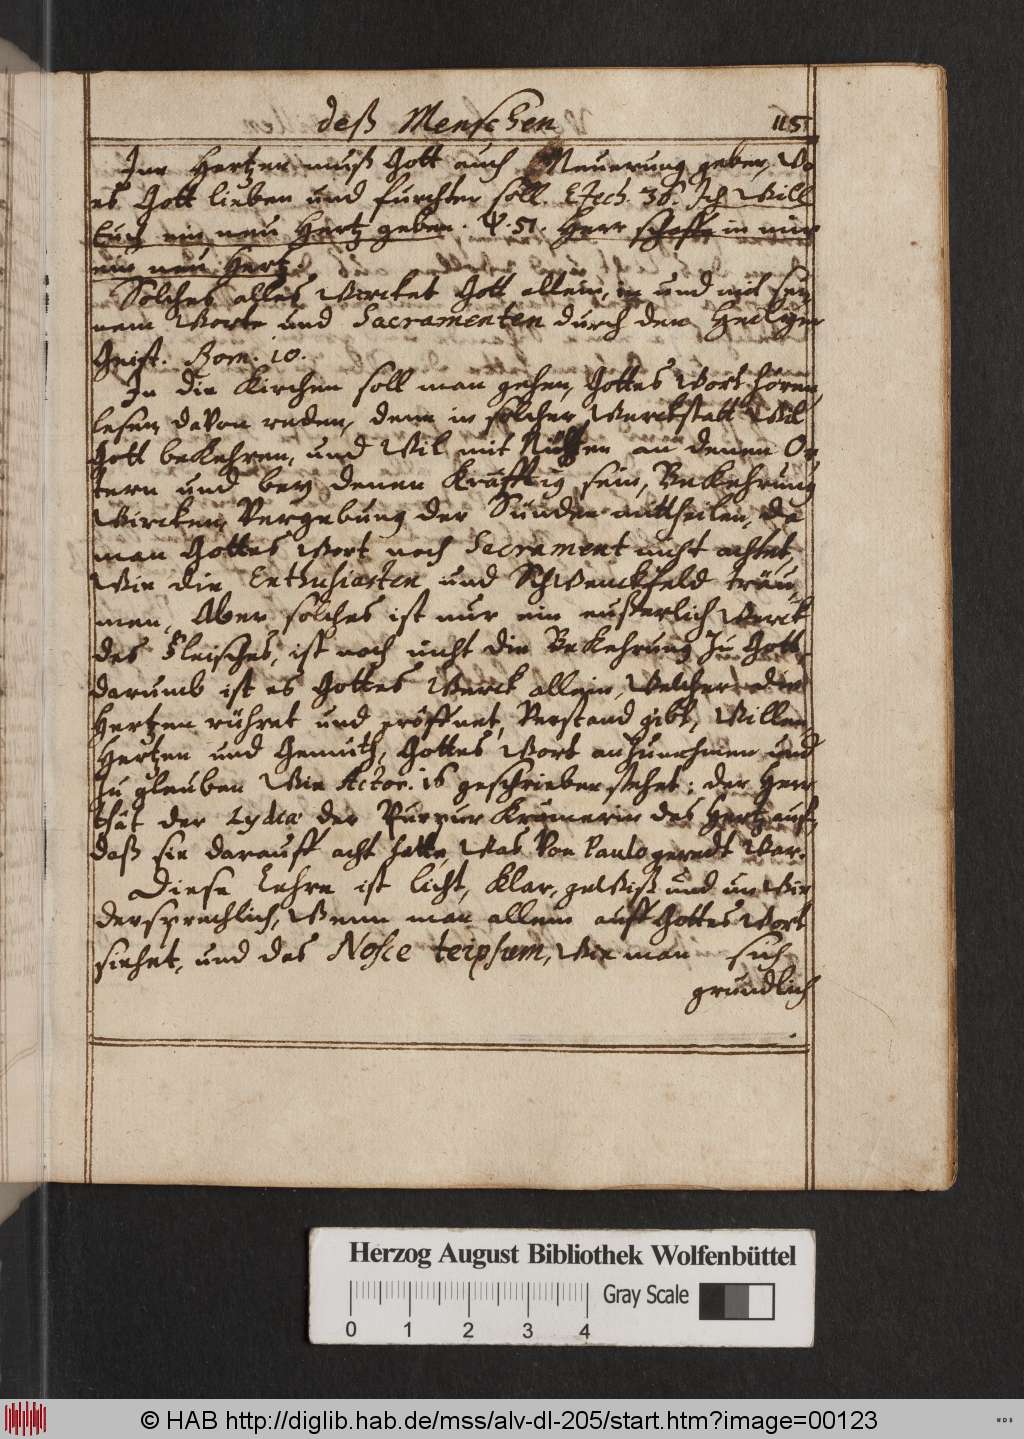 deß Menschen 115
Im Hertzen muß Gott auch Neuerung geben, Wo
es Gott lieben und furchten soll. Ezech. 36. Ich Will
Euch ein neu Hertz geben. Ψ. 51. Herr schaffe in mir
ein neu Hertz.
Solches alles Wircket Gott allein, in und mit sei,
nem Worte und Sacramenten durch den Heiligen
Geist. Rom. 10.
In die Kirchen soll man gehen, Gottes Wort hören,
lesen, daVon reden, denn in solcher Werckstatt Wil
Gott bekehren, und Wil mit Nutzen an denen Or
tern und bey denen Kräfftig sein, Bekehrung
Wircken, Vergebung der Sünden mittheilen, da
man Gottes Wort noch Sacrament nicht achtet,
Wie die Enthusiasten und SchWenckfeld träu,
men, Aber solches ist nur ein eußerlich Werck
des Fleisches, ist noch nicht die Bekehrung zu Gott,
darumb ist es Gottes Werck allein, Welcher das
Hertzen rühret und eröffnet, Verstand gibt, Willen,
Hertzen und Gemuth, Gottes Wort anzunehmen und
zu glauben Wie Actor. 16 geschrieben stehet: der Herr
thät der Lydia der Purpur Krämerin das Hertz auf,
daß sie darauff acht hatte, Was Von Paulo geredt War.
Diese Lehre ist licht, klar, geWiß und unWie
dersprechlich, Wenn man allein auff Gottes Wort
siehet, und das Nosce teipsum, Wie man sich
grundlich
Herzog August Bibliothek Wolfenbüttel
Gray Scale
0 1 2 3 4
© HAB http://diglib.hab.de/mss/alv-dl-205/start.htm?image=00123